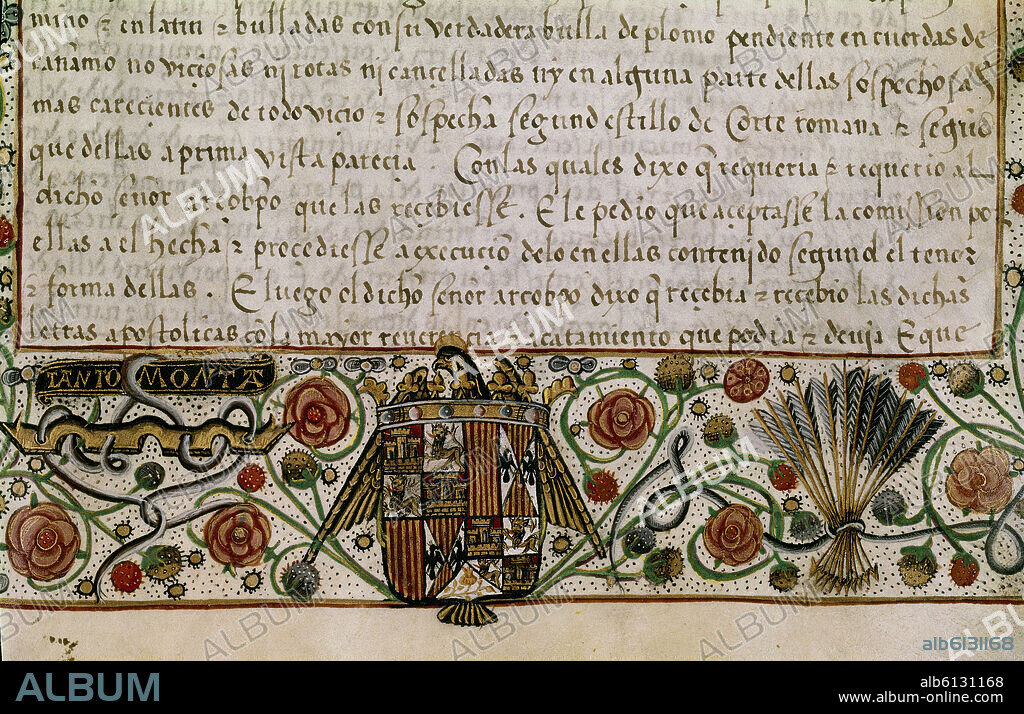 mino ⁊ en latin ⁊ bulladas con su verdadera bulla de plomo pendiente en cuerdas de
cañamo no viçiosas ni rotas ni cançelladas ny en alguna parte dellas sospechosas
mas careçientes de todo viçio ⁊ sospecha segund estillo de Corte romana ⁊ segũd
que dellas a prima vista pareçia Con las quales dixo q̃ requeria ⁊ requerio al
dicho señor arcobpo que las reçebiesse. E le pedio que aceptasse la comission por
ellas a el hecha ⁊ procediesse a execuciõ delo en ellas contenido segund el tenor
⁊ forma dellas. E luego el dicho señor arcobpo dixo q̃ reçebia ⁊ recebio las dichas
letras apostolicas cõ la mayor reuerençia ⁊ acatamiento que podia ⁊ deuia E que
TANTO MONTA
ALBUM
alb6131168
ALBUM
alb6131168
www.album-online.com